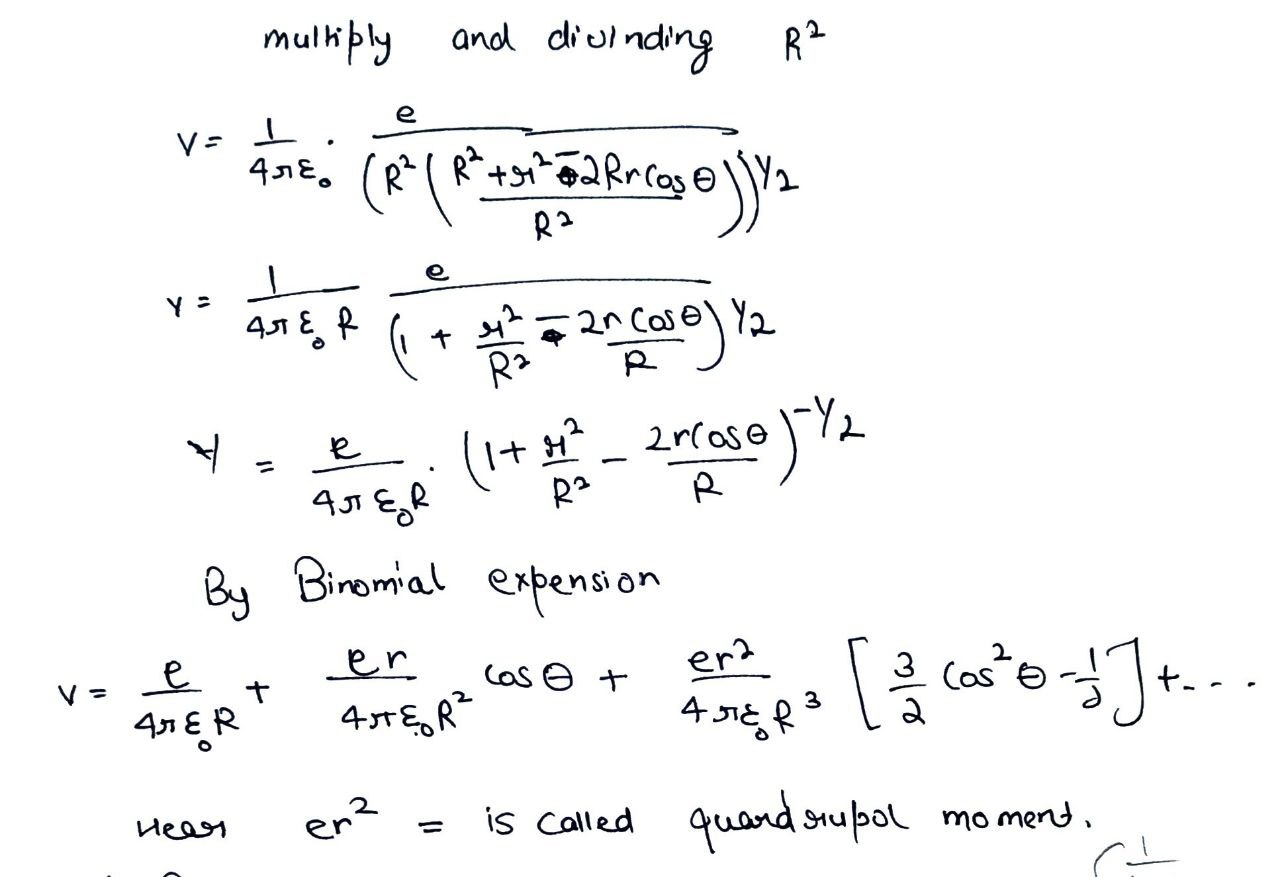 multiply and divinding R²
V = 1/4πε₀ · e/(R²((R²+r²-2Rrcosθ)/R²))^1/2
V = 1/4πε₀R e/(1 + r²/R² - 2rcosθ/R)^1/2
V = e/4πε₀R · (1 + r²/R² - 2rcosθ/R)^-1/2
By Binomial expension
V = e/4πε₀R + er/4πε₀R² cosθ + er²/4πε₀R³ [3/2 cos²θ - 1/2] + - - -
Hear er² = is called quardrupol moment.